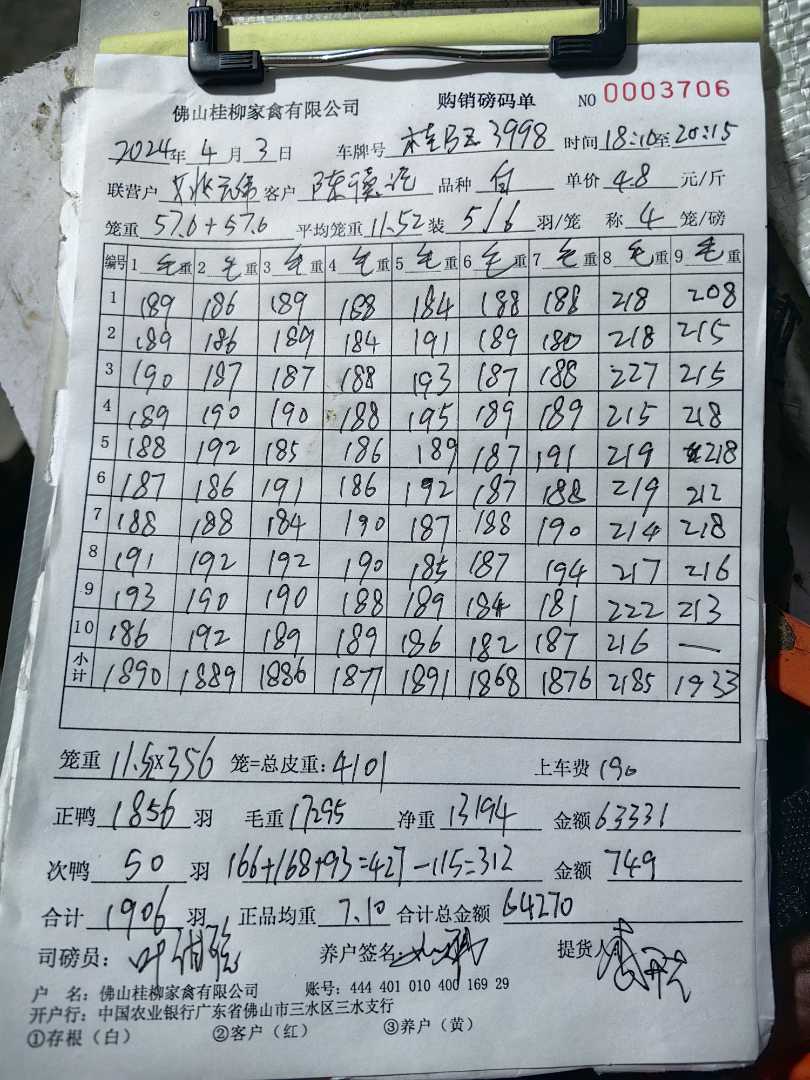 佛山桂柳家禽有限公司 购销磅码单 NO 0003706
2024年 4月 3日 车牌号 桂R 3998 时间 18:10至 20:15
联营户 客户 陈德 品种 白 单价 4.8 元/斤
笼重 57.6+57.6 平均笼重 11.52 装 5/6 羽/笼 称 4 笼/磅
编号 1 毛重 2 毛重 3 毛重 4 毛重 5 毛重 6 毛重 7 毛重 8 毛重 9 毛重
1 189 186 189 188 184 188 188 218 208
2 189 186 189 184 191 189 180 218 215
3 190 187 187 188 193 187 188 227 215
4 189 190 190 188 195 189 189 215 218
5 188 192 185 186 189 187 191 219 218
6 187 186 191 186 192 187 188 219 212
7 188 188 184 190 187 188 190 214 218
8 191 192 192 190 185 187 194 217 216
9 193 190 190 188 189 184 181 222 213
10 186 192 189 189 186 182 187 216 —
小计 1890 1889 1886 1877 1891 1868 1876 2185 1933
笼重 11.52×356 笼=总皮重: 4101 上车费 190
正鸭 1856 羽 毛重 17295 净重 13194 金额 63331
次鸭 50 羽 166+168+93=427-115=312 金额 749
合计 1906 羽 正品均重 7.10 合计总金额 64270
司磅员: 叶 养户签名: 提货人:
户 名: 佛山桂柳家禽有限公司 账号: 444 401 010 400 169 29
开户行: 中国农业银行广东省佛山市三水区三水支行
①存根(白) ②客户(红) ③养户(黄)